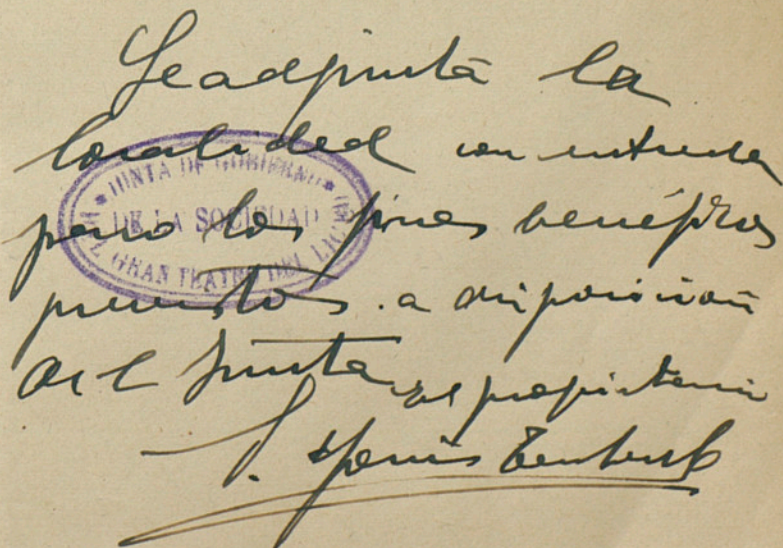 Se adjunta la
localidad con entrada
para los fines benéficos
previstos a disposicion
de l Junta, el propietario
JUNTA DE GOBIERNO
DE LA SOCIEDAD
DEL GRAN TEATRO DEL LICEO